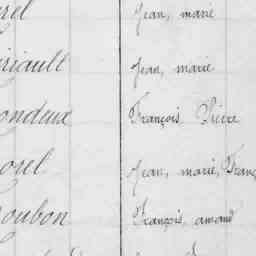 rel Jean, marie
riault Jean, marie
ondeux François Pierre
orel Jean, marie, Franç
oubon François, amand